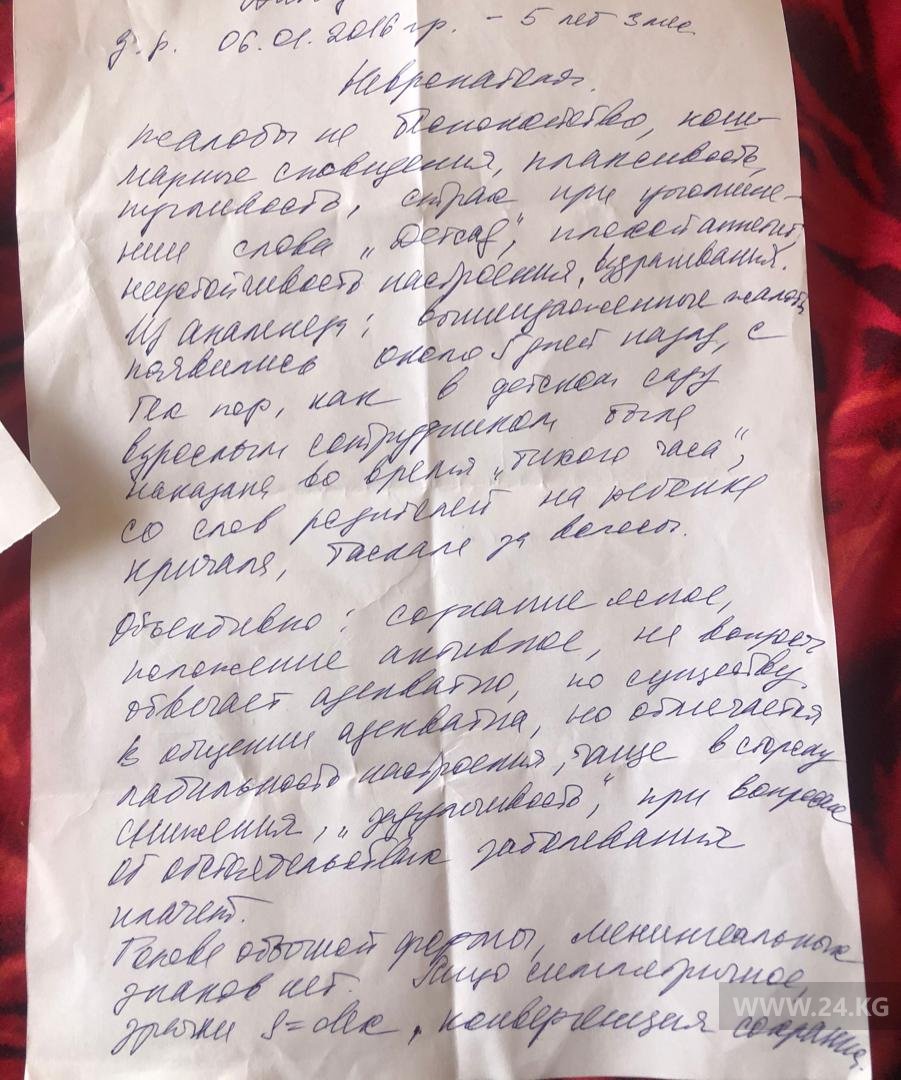 д.р. 06.01.2016 гр. - 5 лет 3 мес
Невропатолог.
Жалобы на беспокойство, кош-
марные сновидения, плаксивость,
пугливость, страх при упомина-
нии слова „детсад", плохой аппетит,
неустойчивость настроения, вздрагивания.
Из анамнеза: вышеуказанные жалобы
появились около 5 дней назад, с
тех пор, как в детском саду
взрослым сотрудником была
наказана во время „тихого часа",
со слов родителей на ребенка
кричала, таскала за волосы.
Объективно: сознание ясное,
положение активное, на вопросы
отвечает адекватно, по существу.
В общении адекватна, но отмечается
лабильность настроения, чаще в сторону
снижения, „задумчивость", при вопросах
об обстоятельствах заболевания
плачет.
Голова обычной формы, менингеальных
знаков нет. Лицо симметричное,
зрачки S=d, конвергенция сохранна.
WWW.24.KG